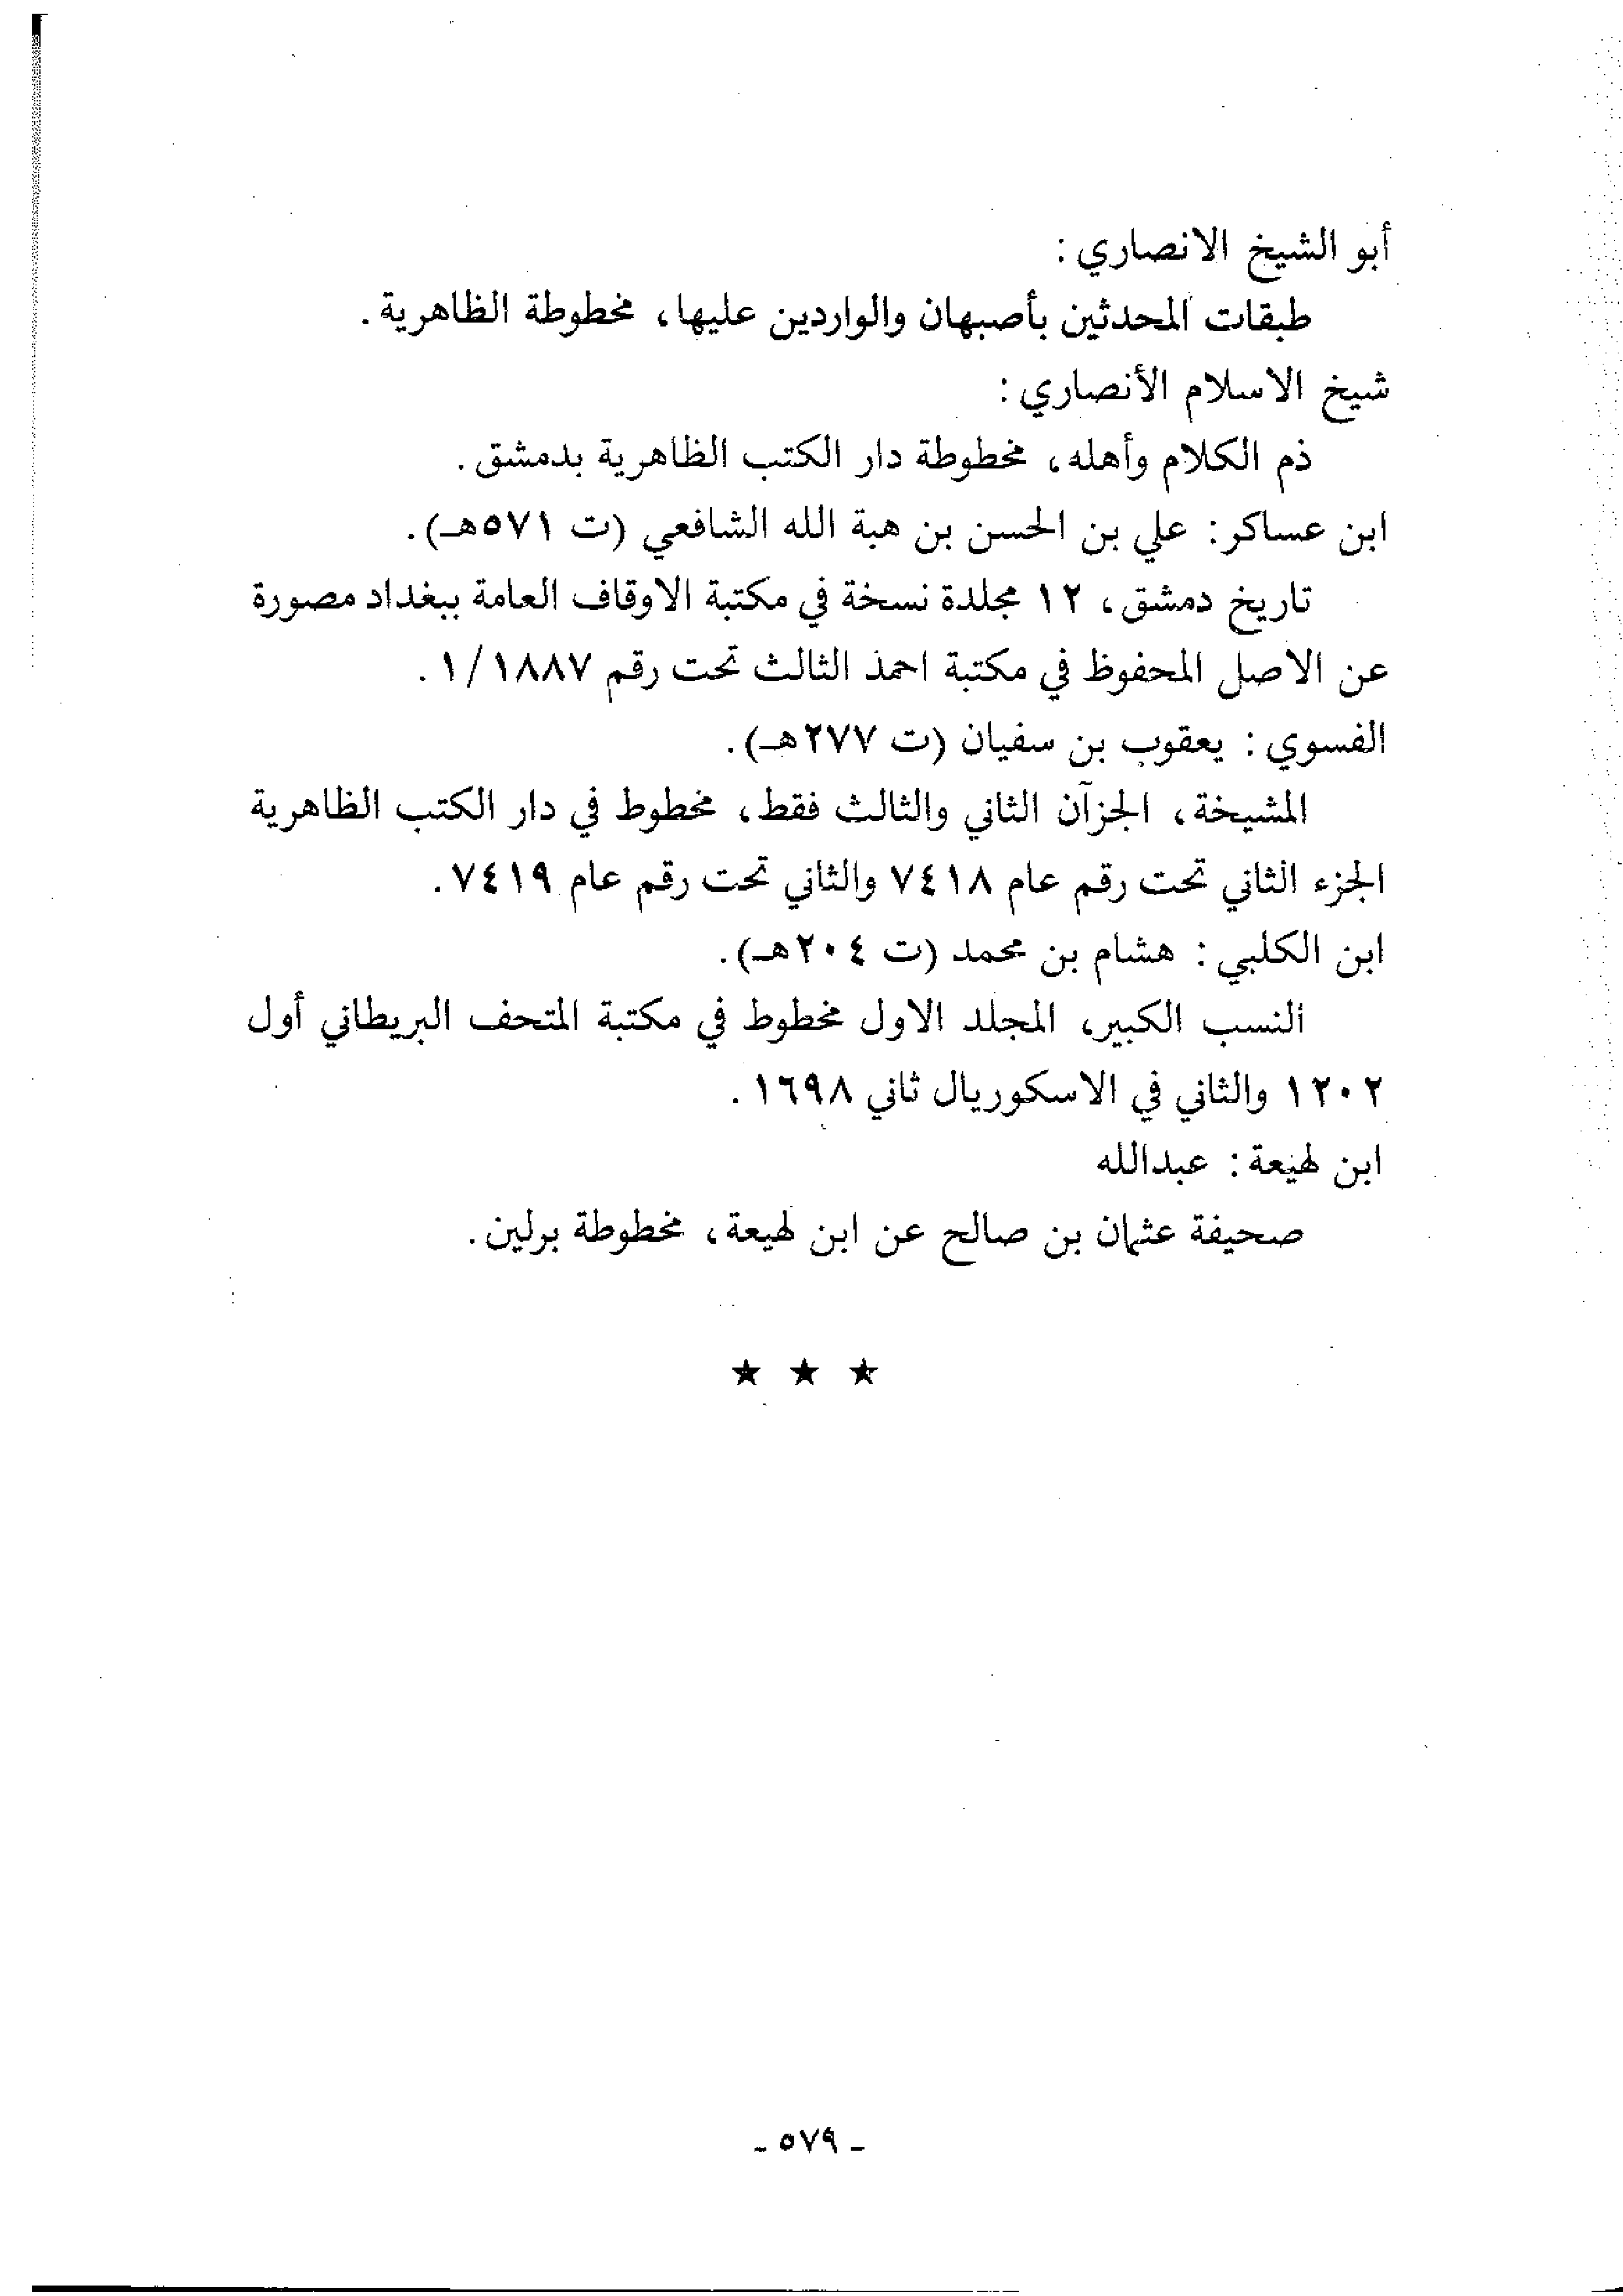 أبو الشيخ الانصاري :
طبقات المحدثين بأصبهان والواردين عليها، مخطوطة الظاهرية .
شيخ الاسلام الأنصاري :
ذم الكلام وأهله، مخطوطة دار الكتب الظاهرية بدمشق .
ابن عساكر: علي بن الحسن بن هبة الله الشافعي (ت ٥٧١هـ) .
تاريخ دمشق، ١٢ مجلدة نسخة في مكتبة الاوقاف العامة ببغداد مصورة
عن الاصل المحفوظ في مكتبة احمد الثالث تحت رقم ١/١٨٨٧ .
الفسوي : يعقوب بن سفيان (ت ٢٧٧هـ) .
المشيخة، الجزآن الثاني والثالث فقط، مخطوط في دار الكتب الظاهرية
الجزء الثاني تحت رقم عام ٧٤١٨ والثاني تحت رقم عام ٧٤١٩ .
ابن الكلبي : هشام بن محمد (ت ٢٠٤هـ) .
النسب الكبير، المجلد الاول مخطوط في مكتبة المتحف البريطاني أول
١٢٠٢ والثاني في الاسكوريال ثاني ١٦٩٨ .
ابن لهيعة : عبدالله
صحيفة عثمان بن صالح عن ابن لهيعة، مخطوطة برلين .
★ ★ ★
- ٥٧٩ -